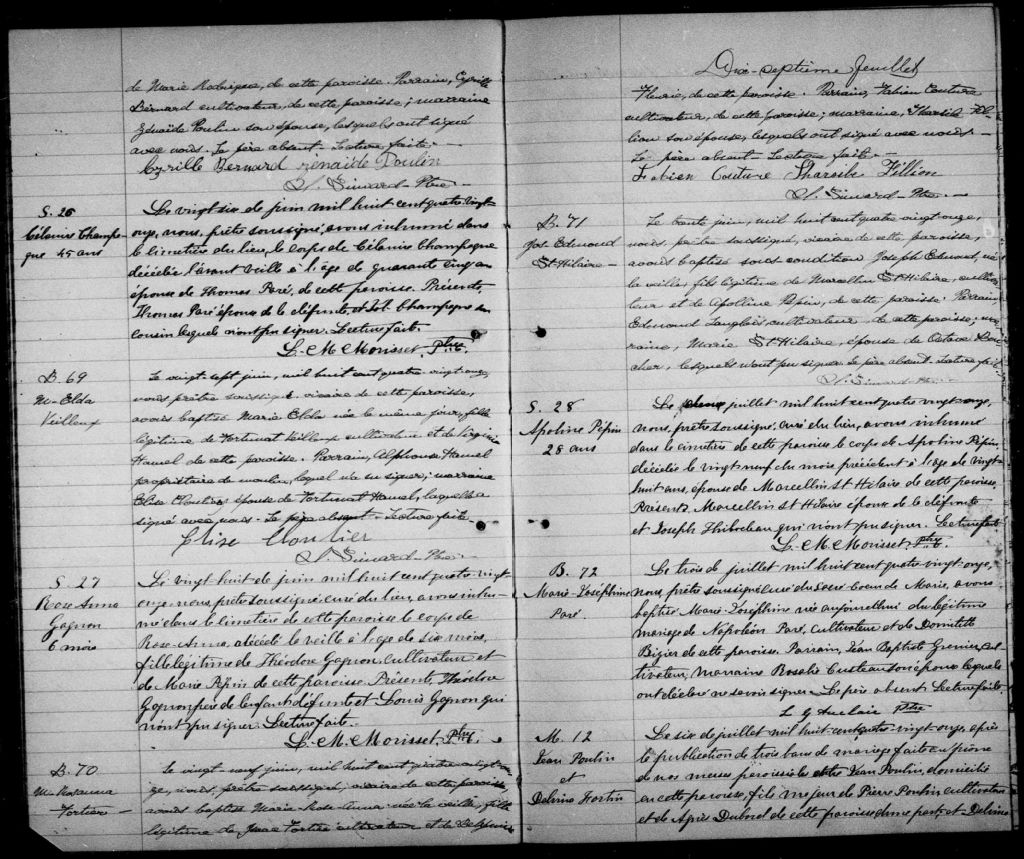 de Marie Rodrigue, de cette paroisse. Parrain, Cyrille
Bernard cultivateur, de cette paroisse; marraine
Zénaïde Poulin son épouse, lesquels ont signé
avec nous. Le père absent. Lecture faite.
Cyrille Bernard Zénaïde Poulin
Simard Ptre
S. 26
Célanire Champagne 45 ans
Le vingt six de juin mil huit cent quatre vingt-
onze, nous, prêtre soussigné, avons inhumé dans
le cimetière du lieu, le corps de Célanire Champagne
décédée l'avant veille à l'âge de quarante cinq ans
épouse de Thomas Paré, de cette paroisse. Présents,
Thomas Paré époux de la défunte, et Champagne son
cousin lesquels n'ont pu signer. Lecture faite.
L. M. Morisset, Ptre.
B. 69
M. Elda
Veilleux
Le vingt-sept juin, mil huit cent quatre vingt-onze,
nous prêtre soussigné, vicaire de cette paroisse,
avons baptisé Marie Elda née le même jour, fille
légitime de Fortunat Veilleux cultivateur et de Virginie
Hamel de cette paroisse. Parrain, Alphonse Hamel
propriétaire de moulin, lequel n'a su signer; marraine
Elise Cloutier épouse de Fortunat Hamel, laquelle a
signé avec nous. Le père absent. Lecture faite.
Elise Cloutier
Simard Ptre
S. 27
Rose Anna
Gagnon
6 mois
Le vingt huit de juin mil huit cent quatre vingt-
onze nous, prêtre soussigné curé du lieu, avons inhu-
mé dans le cimetière de cette paroisse le corps de
Rose-Anna, décédé la veille à l'age de six mois,
fille légitime de Théodore Gagnon, cultivateur et
de Marie Pépin de cette paroisse. Présents, Théodore
Gagnon père de l'enfant défunte et Louis Gagnon qui
n'ont pu signer. Lecture faite.
L. M. Morisset, Ptre.
B. 70
M. Rosanna
Fortier
Le vingt-neuf juin, mil huit cent quatre vingt-on-
ze, nous, prêtre soussigné, vicaire de cette paroisse,
avons baptisé Marie Rose Anna née la veille, fille
légitime de Fortier cultivateur et de
Dix-septième feuillet
Fleurie, de cette paroisse. Parrain, Fabien Couture
cultivateur, de cette paroisse; marraine, Tharsile Fil-
lion son épouse, lesquels ont signé avec nous.
Le père absent. Lecture faite.
Fabien Couture Tharsile Fillion
Simard Ptre
B. 71
Jos. Edmond
St Hilaire
Le trente juin, mil huit cent quatre vingt-onze,
nous, prêtre soussigné, vicaire de cette paroisse,
avons baptisé sous condition Joseph Edmond, né
la veille, fils légitime de Marcellin St Hilaire, cultiva-
teur et de Apolline Pépin, de cette paroisse. Parrain,
Edmond Langlois, cultivateur, de cette paroisse; mar-
raine, Marie St Hilaire, épouse de Octave
lesquels n'ont pu signer. Le père absent. Lecture faite
Simard Ptre
S. 28
Apoline Pépin
28 ans
Le deux juillet mil huit cent quatre vingt-onze,
nous, prêtre soussigné, curé du lieu, avons inhumé
dans le cimetière de cette paroisse le corps de Apoline Pépin
décédée le vingt-neuf du mois précédent à l'age de vingt-
huit ans, épouse de Marcellin St Hilaire de cette paroisse.
Présents, Marcellin St Hilaire époux de la défunte
et Joseph Thibodeau qui n'ont pu signer. Lecture faite
L. M. Morisset, Ptre.
B. 72
Marie-Joséphine
Paré
Le trois de juillet mil huit cent quatre vingt-onze,
nous, prêtre soussigné, curé du Sacré Coeur de Marie, avons
baptisé Marie Joséphine née aujourd'hui du légitime
mariage de Napoléon Paré, cultivateur et de Domitille
Bizier de cette paroisse. Parrain, Jean Baptiste Grenier, cul-
tivateur, marraine Rosalie Custeau son épouse lesquels
ont déclaré ne savoir signer. Le père absent. Lecture faite.
L G Auclair Ptre
M. 12
Jean Poulin
et
Delvina Fortin
Le six de juillet mil huit cent quatre vingt-onze, après
la publication de trois bans de mariage faite au prône
de nos messes paroissiales entre Jean Poulin, domicilié
en cette paroisse, fils majeur de Pierre Poulin cultivateur
et de Dubord de cette paroisse d'une part, et Delvina